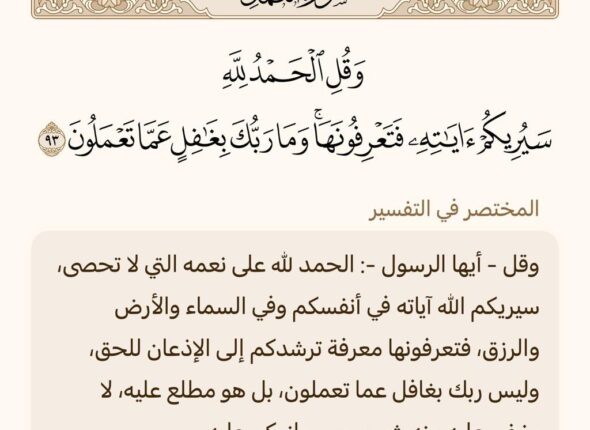 وَقُلِ ٱلۡحَمۡدُ لِلَّهِ
سَيُرِيكُمۡ ءَايَٰتِهِۦ فَتَعۡرِفُونَهَاۚ وَمَا رَبُّكَ بِغَٰفِلٍ عَمَّا تَعۡمَلُونَ ٩٣
المختصر في التفسير
وقل - أيها الرسول -: الحمد لله على نعمه التي لا تحصى،
سيريكم الله آياته في أنفسكم وفي السماء والأرض
والرزق، فتعرفونها معرفة ترشدكم إلى الإذعان للحق،
وليس ربك بغافل عما تعملون، بل هو مطلع عليه، لا